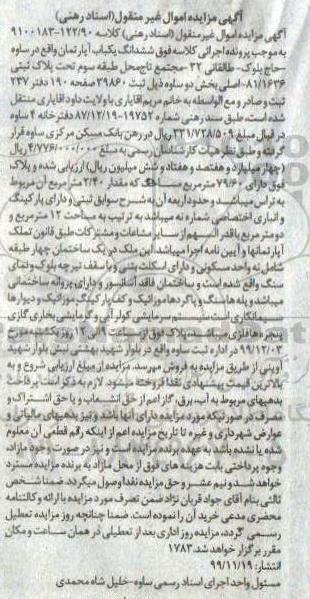 آگهی مزایده اموال غیر منقول(اسناد رهنی)
آگهی مزایده اموال غیر منقول (اسناد رهنی) کلاسه ۱۲۲/۹۰-۹۱۰۰۱۸۳
به موجب پرونده اجرائی کلاسه فوق ششدانگ یکباب آپارتمان واقع در ساوه
-حاج بلوک- طالقانی ۳۲ -مجتمع تاج محل- طبقه سوم تحت پلاک ثبتی
۸۱/۱۶۳۶- اصلی بخش دو ساوه ذیل ثبت ۳۹۸۶۰ صفحه ۱۹۰ دفتر ۲۳۷
ثبت و صادر و مع الواسطه به خانم مریم اقایاری با ولایت داود اقایاری منتقل
شده است، طبق سند رهنی شماره ۱۹۷۵۲- ۸۷/۱۲/۱۹ دفترخانه ۴ ساوه
در قبال مبلغ ۳۳۱/۷۲۸/۵۰۹ ریال در رهن بانک مسکن مرکزی ساوه قرار
گرفته و طبق نظر هیات کارشناسان رسمی به مبلغ ۴/۷۷۶/۰۰۰/۰۰۰ ریال
(چهار میلیارد و هفتصد و هفتاد و شش میلیون ریال) ارزیابی شده و پلاک
فوق دارای ۷۹/۶۰ مترمربع مساحت که مقدار ۲/۴۰ مترمربع آن مربوط
به تراس میباشد و حدود اربعه آن به شرح سوابق ثبتی و دارای پارکینگ
و انباری اختصاصی شماره نه میباشد به ترتیب به مساحت ۱۲ مترمربع و
دو مترمربع با قدرالسهم از سایر مشاعات و مشترکات طبق قانون تملک
آپارتمانها و آیین نامه اجرا میباشد، این ملک در یک ساختمان چهار طبقه
شامل نه واحد مسکونی و دارای اسکلت بتنی و با سقف تیرچه بلوک و نمای
سنگ واقع شده است و ساختمان فاقد آسانسور و دارای پروانه ساختمانی
میباشد و پله ها سنگ و پاگردها موزائیک و کف پارکینگ موزائیک و دیوارها
سیمانکاری است، سیستم سرمایشی کولر آبی و گرمایشی بخاری گازی
پنجره ها فلزی میباشد، پلاک فوق از ساعت ۹ الی ۱۲ روز یکشنبه مورخ
۹۹/۱۲/۰۳ در اداره ثبت ساوه واقع در بلوار شهید بهشتی نبش بلوار شهید
آوینی از طریق مزایده به فروش میرسد. مزایده از مبلغ ارزیابی شروع و به
بالاترین قیمت پیشنهادی نقدا فروخته میشود. لازم به ذکر است پرداخت
بدهیهای مربوط به آب، برق، گاز اعم از حق انشعاب و یا حق اشتراک و
مصرف در صورتیکه مورد مزایده دارای آنها باشد و نیز بدهیهای مالیاتی و
عوارض شهرداری و غیره تا تاریخ مزایده اعم از اینکه رقم قطعی آن معلوم
شده یا نشده باشد به عهده برنده مزایده است و نیز در صورت وجود مازاد،
وجوه پرداختی بابت هزینه های فوق از محل مازاد به برنده مزایده مسترد
خواهد شد و نیم عشر و حق مزایده نقدا وصول میگردد. ضمنا شخص
ثالثی بنام آقای جواد قربان نژاد ضمن تصرف مورد مزایده با ارائه وکالتنامه
محضری مدعی خرید آن را نموده است. ضمنا چنانچه روز مزایده تعطیل
رسمی گردد، مزایده روز اداری بعد از تعطیلی در همان ساعت و مکان
مقرر برگزار خواهد شد. ۱۷۸۳
انتشار: ۹۹/۱۱/۱۹
مسئول واحد اجرای اسناد رسمی ساوه-خلیل شاه محمدی